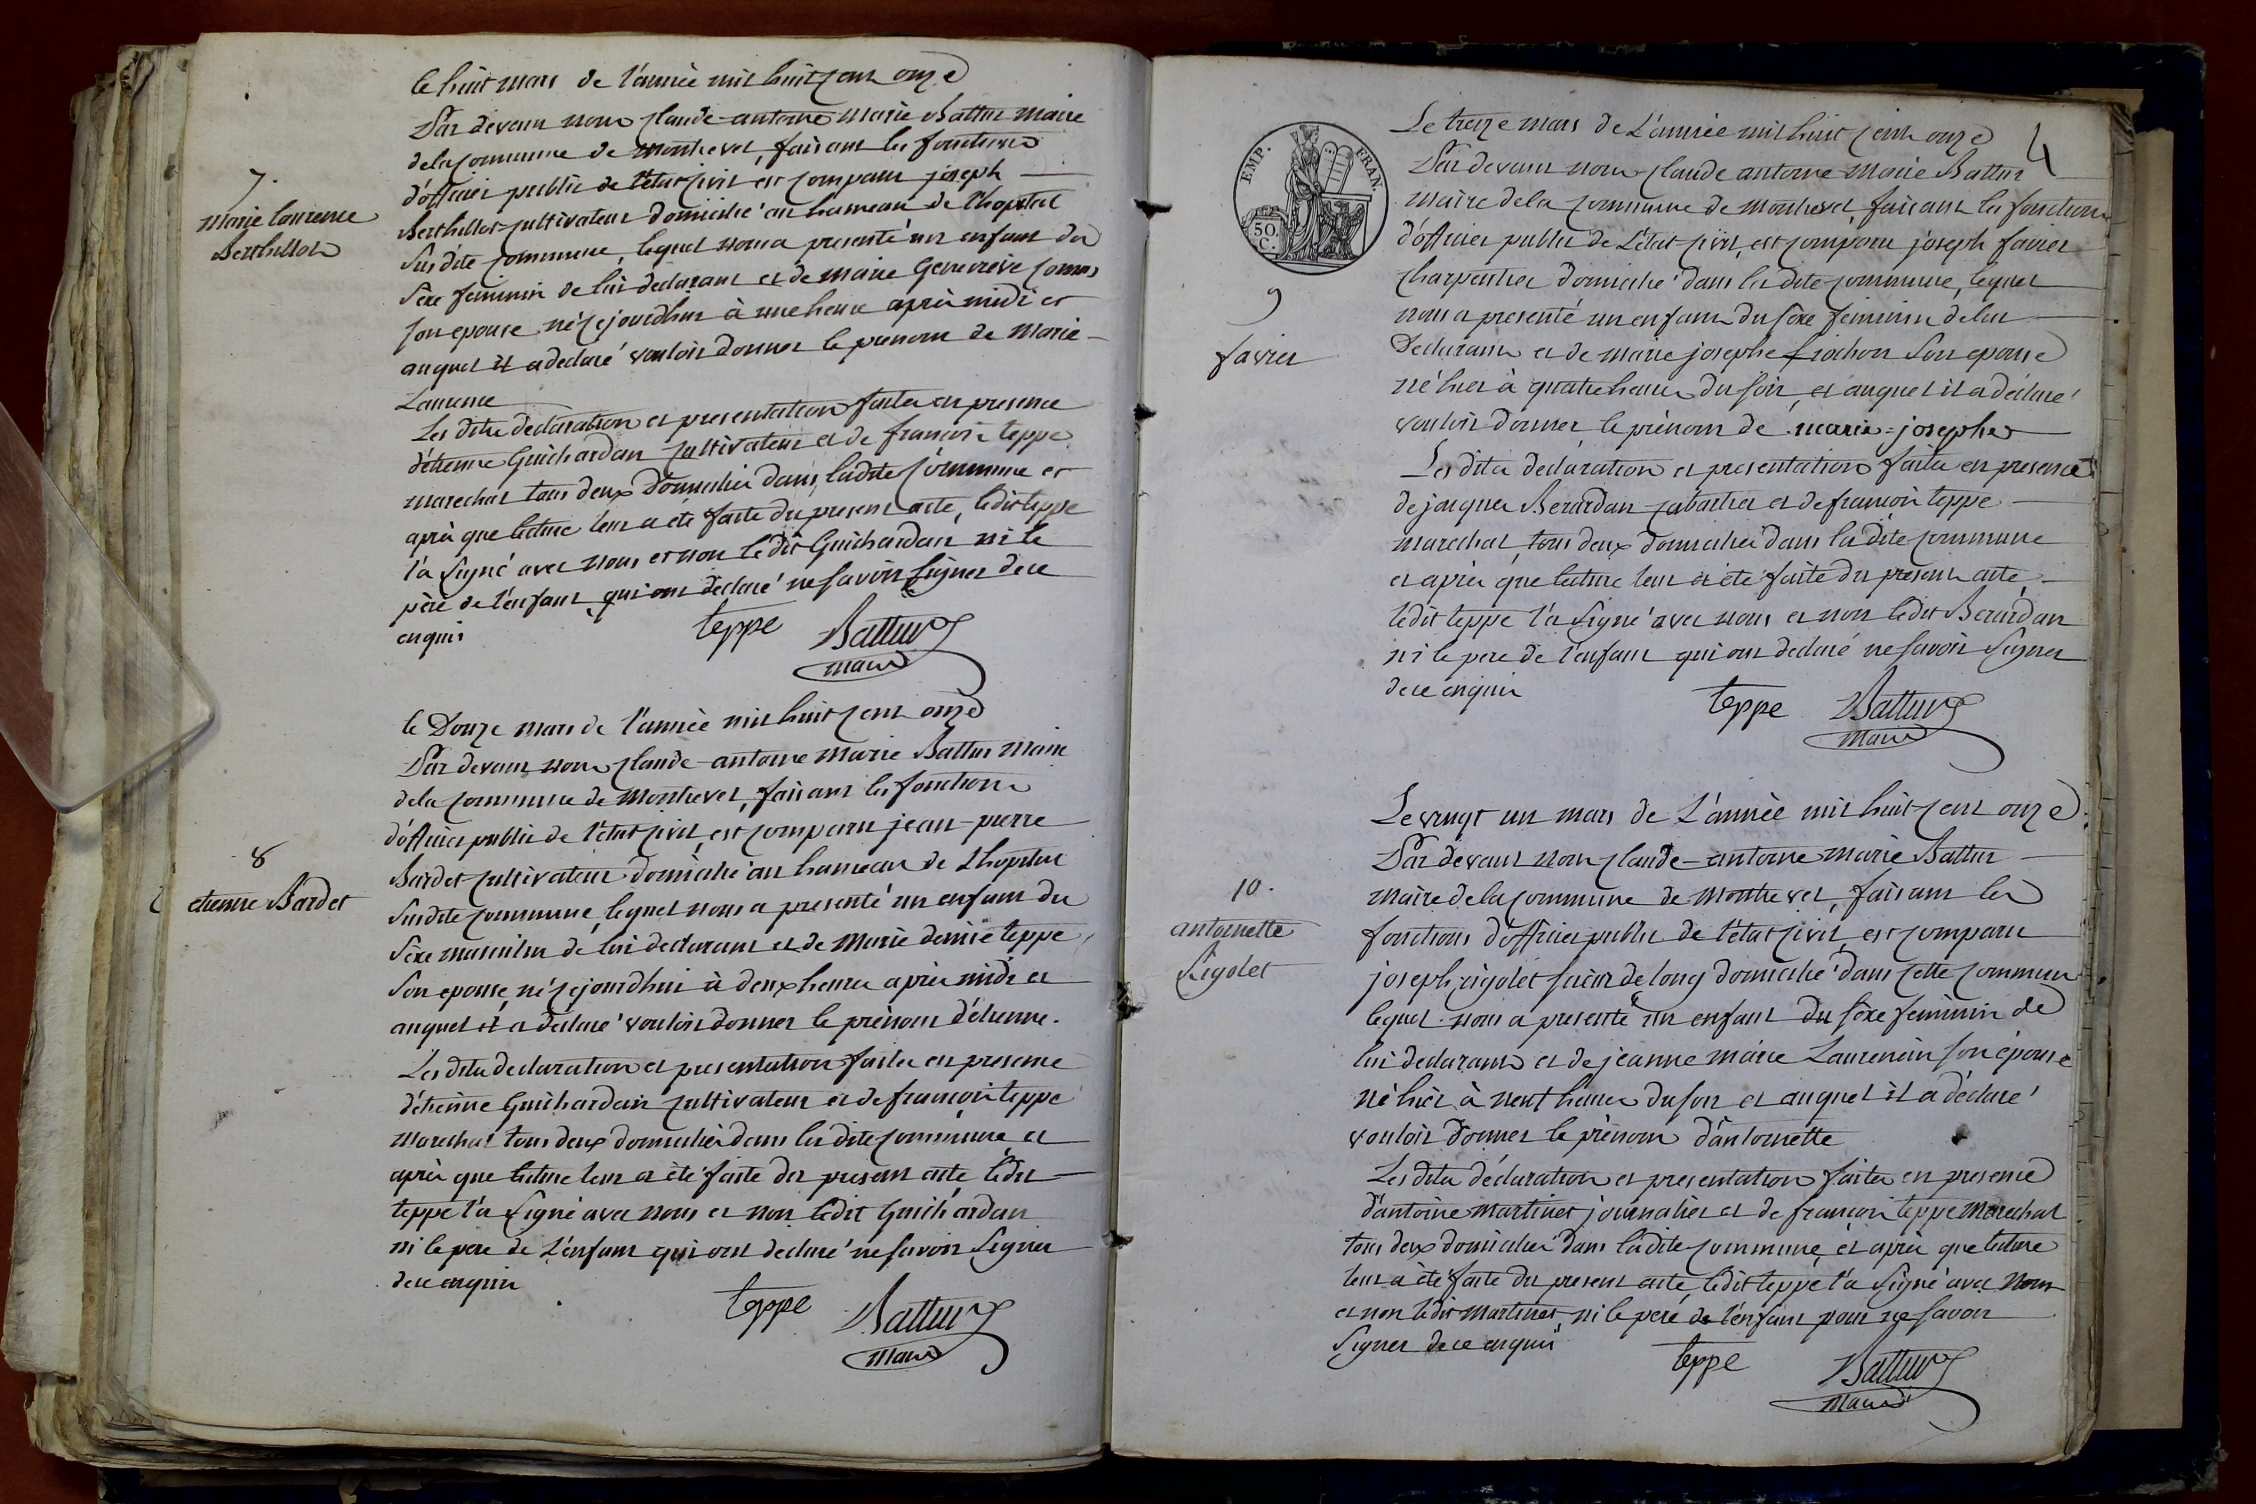 le huit mars de l'année mil huit cent onze
Par devant nous Claude-antoine Marie Battur Maire
de la commune de Montrevel, faisant les fonctions
d'officier public de l'état civil est comparu joseph
7.
Marie laurence
Berthillot
Berthillot cultivateur domicilié au hameau de l'hopital
Susdite commune, lequel nous a presenté un enfant du
Sexe feminin de lui declarant et de Marie Genevieve
son epouse né cejourdhui à une heure après midi et
auquel il a declaré vouloir donner le prenom de Marie-
Laurence
Les dites déclaration et presentation faites en presence
d'étienne Guichardan cultivateur et de francois teppe
marechal tous deux domiciliés dans ladite commune et
après que lecture leur a été faite du present acte, ledit teppe
l'a Signé avec nous et non le dit Guichardan ni le
père de l'enfant qui ont declaré ne savoir Signer de ce
enquis
teppe Battur
maire
le Douze mars de l'année mil huit cent onze
Par devant nous Claude-antoine Marie Battur Maire
de la commune de Montrevel, faisant les fonctions
d'officier public de l'état civil, est comparu jean-pierre
8
etienne Bardet
Bardet cultivateur domicilié au hameau de Lhopital
Susdite commune, lequel nous a presenté un enfant du
Sexe masculin de lui declarant et de Marie denise teppe
Son epouse, né cejourdhui à deux heures après midi et
auquel il a déclaré vouloir donner le prénom d'étienne.
Les dites declaration et presentation faites en presence
d'étienne Guichardan cultivateur et de francois teppe
Marechal tous deux domiciliés dans la dite commune, et
après que lecture leur a été faite du present acte ledit
teppe l'a Signé avec nous et non ledit Guichardan
ni le pere de L'enfant qui ont declaré ne savoir Signer
de ce enquis
teppe Battur
maire
4
EMP. FRAN.
50.
C.
Le treize mars de L'année mil huit cent onze
Par devant nous Claude antoine Marie Battur
Maire de la commune de Montrevel, faisant les fonctions
d'officier public de L'état civil, est comparu joseph favier
Charpentier domicilié dans la dite commune, lequel
9
favier
nous a presenté un enfant du sexe feminin de lui
Declarant et de marie josephe frochon Son epouse
né hier à quatre heures du soir, et auquel il a déclaré
vouloir donner le prénom de marie=josephe
Les dites declaration et presentation faites en presence
de jacques Berardan cabartier et de francois teppe
marechal, tous deux domiciliés dans la dite commune
et après que lecture leur a été faite du present acte,
ledit teppe l'a Signé avec nous et non ledit Berardan
ni le pere de l'enfant qui ont declaré ne savoir Signer
de ce enquis
teppe Battur
maire
Le vingt un mars de L'année mil huit cent onze
Par devant nous Claude-antoine Marie Battur
Maire de la commune de Montrevel, faisant les
10.
antoinette
Rigolet
fonctions d'officier public de l'état civil est comparu
joseph rigolet scieur de long domicilié dans cette commune
lequel nous a presenté un enfant du sexe feminin de
lui declarant et de jeanne marie Laurencin son épouse
né hier à neuf heures du soir et auquel il a déclaré
vouloir donner le prénom d'antoinette
Les dites déclaration et presentation faites en presence
d'antoine martinet journalier et de francois teppe Marechal
tous deux domiciliés dans la dite commune, et après que lecture
leur a été faite du present acte ledit teppe l'a Signé avec nous
et non ledit Martinet, ni le pere de l'enfant pour ne savoir
Signer de ce enquis
teppe Battur
maire